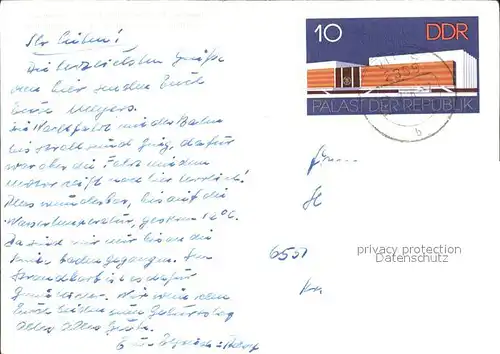 Ihr Lieben!
Die herzlichsten Grüße
von hier senden Euch
Eure Meyers.
Die Nachtfahrt mit der Bahn
bis Stralsund ging, dafür
war aber die Fahrt mit dem
Motorschiff nach hier herrlich!
Alles wunderbar, bis auf die
Wassertemperatur, gestern 12°C.
Da sind wir nur bis an die
Knie baden gegangen. Im
Strandkorb ist es dafür
Wir wünschen
Euch beiden zum Geburtstag
alles alles Gute.
10 DDR
PALAST DER REPUBLIK
b
6551
privacy protection
Datenschutz